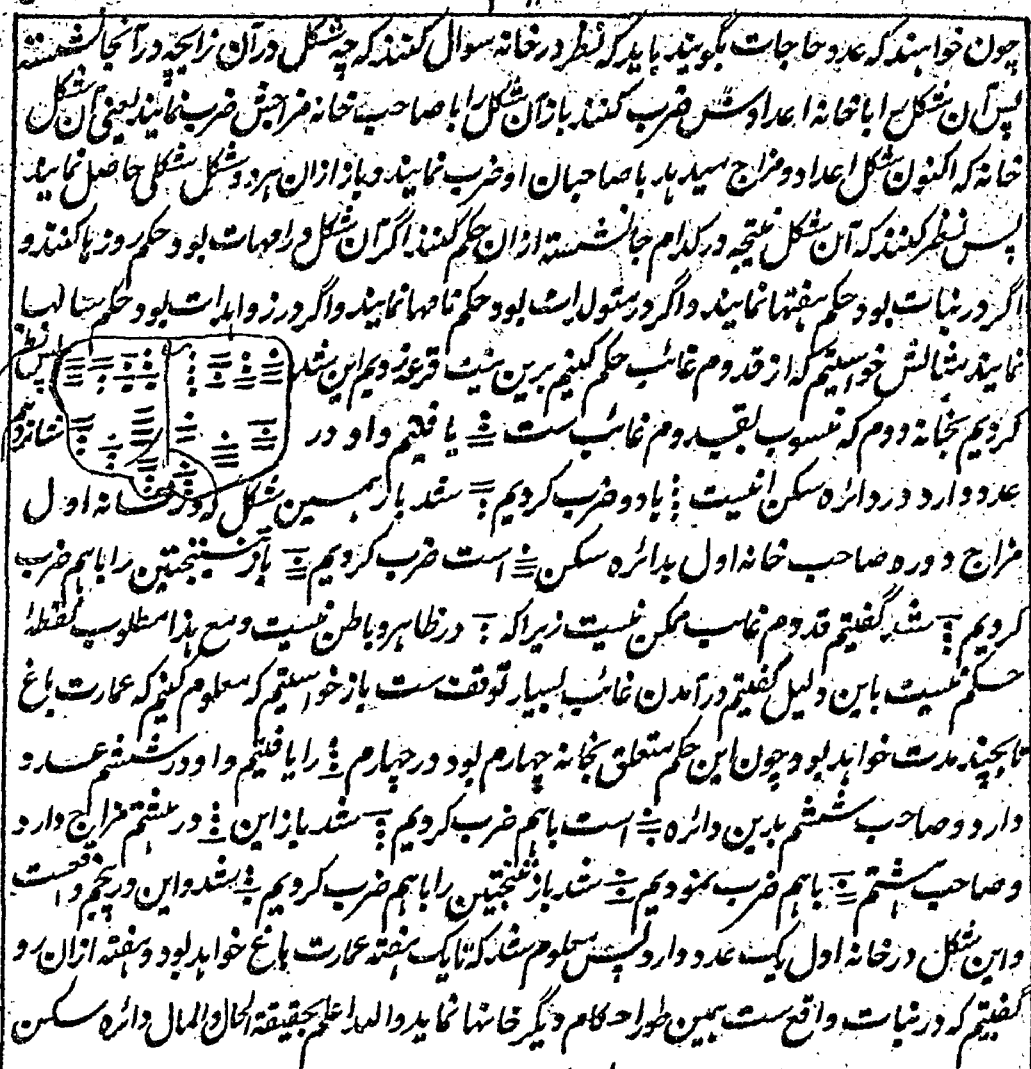 چون خواهند که عدد حاجات بگویند باید که نظر در خانه سوال کنند که چه شکل در آن زایچه در آنجا نشسته
پس آن شکل را با خانه اعدادش ضرب کنند باز آن شکل را با صاحب خانه مزاجش ضرب نمایند یعنی آن شکل
خانه که اکنون شکل اعداد و مزاج میدهد با صاحبان او ضرب نمایند و باز ازان هر دو شکل شکلی حاصل نمایند
پس نظر کنند که آن شکل نتیجه در کدام جا نشسته ازان حکم کنند اگر آن شکل در امهات بود حکم روزها کنند و
اگر در بنات بود حکم هفتها نمایند و اگر در متولدات بود حکم ماهها نمایند و اگر در زوایدات بود حکم سالها
نمایند مثالش خواستیم که از قدوم غائب حکم کنیم برین نیت قرعه زدیم این شد پس نظر
کردیم بخانه دوم که منسوب بقدوم غائب ست یافتیم و او در شانزدهم
عدد دارد در دائره سکن نیست با دو ضرب کردیم شد باز همین شکل که در خانه اول
مزاج دوره صاحب خانه اول بدائره سکن است ضرب کردیم باز نتیجتین را باهم ضرب
کردیم شد گفتیم قدوم غائب ممکن نیست زیرا که در ظاهر و باطن نیست و مع هذا مطلوب نقطهٔ
حکم نیست باین دلیل گفتیم در آمدن غائب بسیار توقف ست باز خواستیم که معلوم کنیم که عمارت باغ
تا بچند مدت خواهد بود چون این حکم متعلق بخانه چهارم بود در چهارم را یافتیم و او در ششم عدد
دارد و صاحب ششم بدین دائره است باهم ضرب کردیم شد باز این در هشتم مزاج دارد
و صاحب هشتم باهم ضرب نمودیم شد باز نتیجتین را باهم ضرب کردیم شد و این در پنجم واقعست
و این شکل در خانه اول یک عدد دارد پس معلوم شد که تا یک هفته عمارت باغ خواهد بود و هفته ازان رو
گفتیم که در بنات واقع ست همین طور احکام دیگر خانها نماید والله اعلم بحقیقة الحال والمال دائره سکن